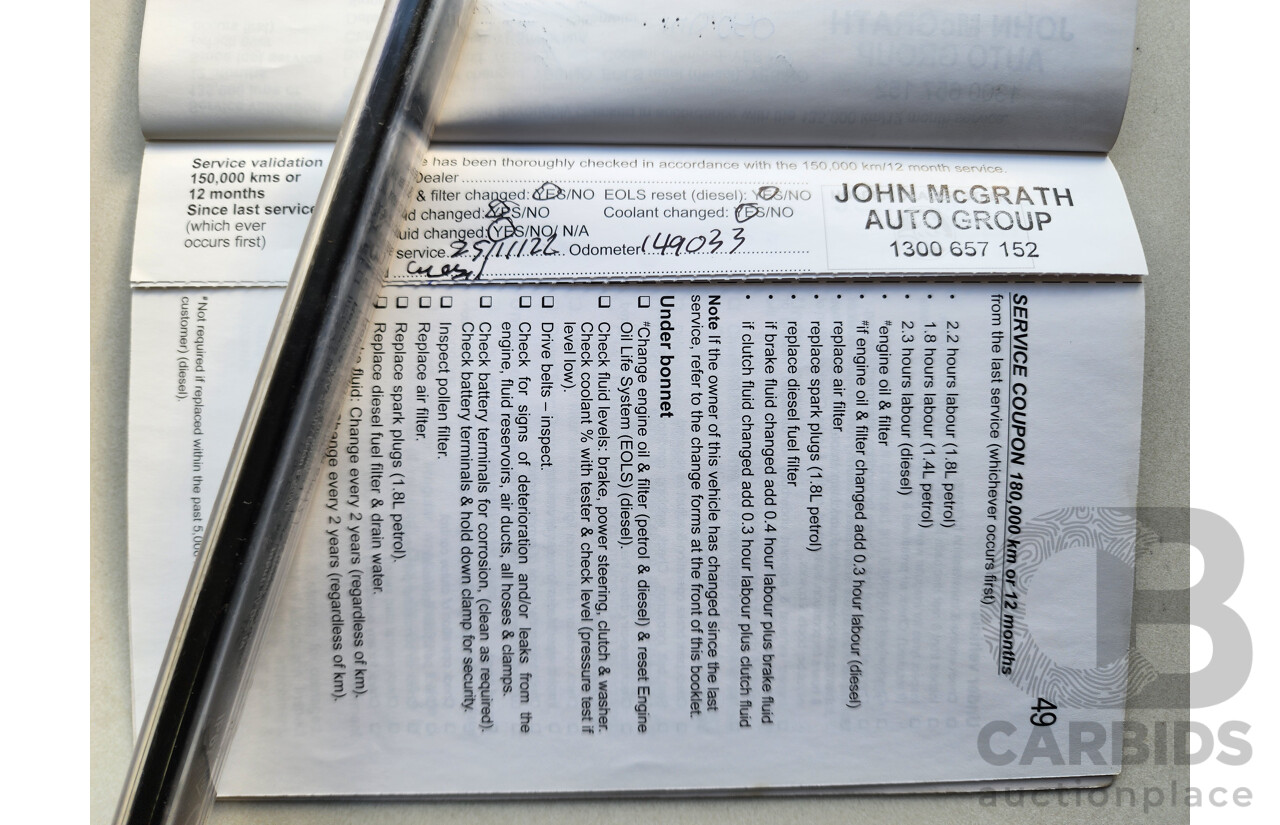 Service validation
150,000 kms or
12 months
Since last service
(which ever
occurs first)
has been thoroughly checked in accordance with the 150,000 km/12 month service.
Dealer
& filter changed: YES/NO EOLS reset (diesel): YES/NO
changed: YES/NO Coolant changed: YES/NO
changed: YES/NO/ N/A
service 25/11/22 Odometer 149033
JOHN McGRATH
AUTO GROUP
1300 657 152
SERVICE COUPON 180,000 km or 12 months
49
from the last service (whichever occurs first)
• 2.2 hours labour (1.8L petrol)
• 1.8 hours labour (1.4L petrol)
• 2.3 hours labour (diesel)
• #engine oil & filter
• #if engine oil & filter changed add 0.3 hour labour (diesel)
• replace air filter
• replace spark plugs (1.8L petrol)
• replace diesel fuel filter
• if brake fluid changed add 0.4 hour labour plus brake fluid
• if clutch fluid changed add 0.3 hour labour plus clutch fluid
Note If the owner of this vehicle has changed since the last
service, refer to the change forms at the front of this booklet.
Under bonnet
❑ #Change engine oil & filter (petrol & diesel) & reset Engine
Oil Life System (EOLS) (diesel).
❑ Check fluid levels: brake, power steering, clutch & washer.
Check coolant % with tester & check level (pressure test if
level low).
❑ Drive belts – inspect.
❑ Check for signs of deterioration and/or leaks from the
engine, fluid reservoirs, air ducts, all hoses & clamps.
❑ Check battery terminals for corrosion, (clean as required).
Check battery terminals & hold down clamp for security.
❑ Inspect pollen filter.
❑ Replace air filter.
❑ Replace spark plugs (1.8L petrol).
❑ Replace diesel fuel filter & drain water.
fluid: Change every 2 years (regardless of km).
every 2 years (regardless of km).
#Not required if replaced within the past 5,000
customer) (diesel).
CARBIDS
auctionplace